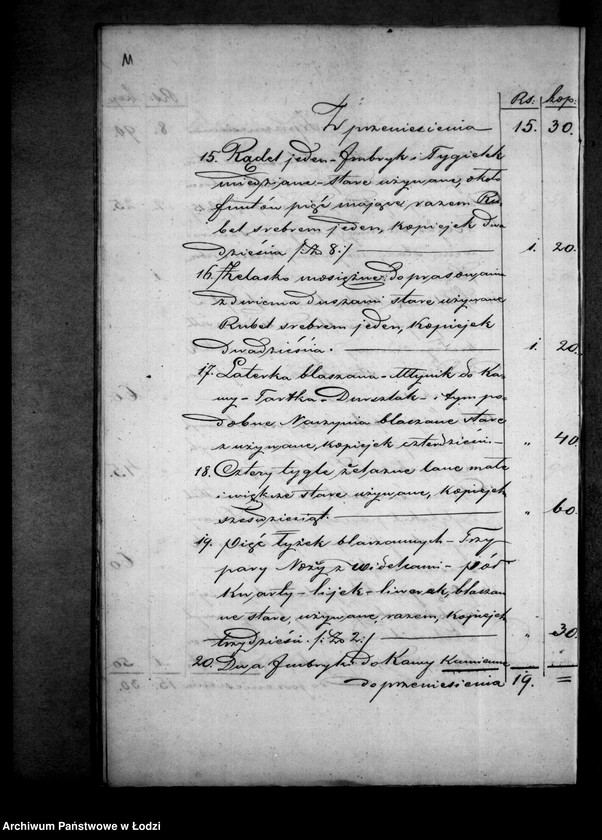 Rs. kop:
Z przeniesienia 15. 30.
15. Rądel jeden - Imbryk i Tygielek
miedziane - stare używane, około
funtów pięć mające, razem Ru-
bel srebrem jeden, kopiejek dwa
dzieścia /: Zł 8:/ 1. 20.
16. Żelasko mosiężne do prasowania
z dwiema duszami stare używane
Rubel srebrem jeden, kopiejek
dwadzieścia. 1. 20.
17. Laterka blaszana - Młynik do Ka-
wy - Tartka - Durszlak - i tym po-
dobne Naczynia blaszane stare
z używane, kopiejek czterdzieści. " 40.
18. Cztery tygle żelazne lane małe
i większe stare używane, kopiejek
sześćdziesiąt. " 60.
19. Pięć łyżek blaszannych - Trzy
pary Noży z widelcami - pół
kwarty - lijek - liwarek, blaszan
ne stare, używane, razem, kopiejek
trzydzieści /: Zł 2:/ " 30.
20. Dwa Imbryki do Kawy Kamienne
do przeniesienia 19. =
Archiwum Państwowe w Łodzi